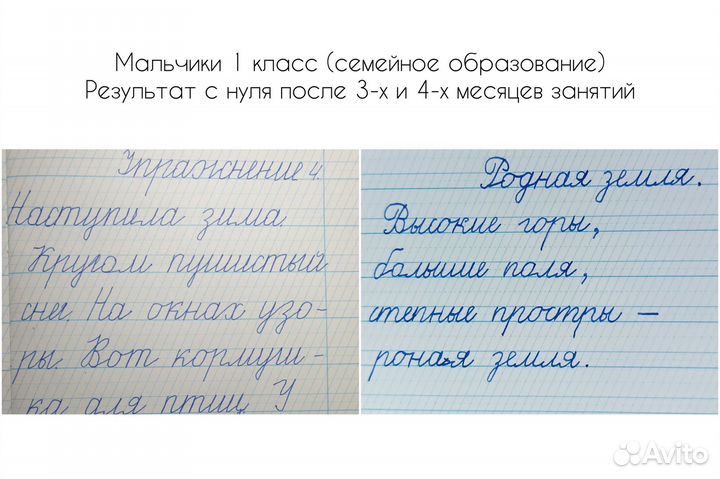 Мальчики 1 класс (семейное образование)
Результат с нуля после 3-х и 4-х месяцев занятий
Упражнение 4.
Наступила зима
Кругом пушистый
снег. На окнах узо-
ры. Вот кормуш-
ка для птиц. У
Родная земля.
Высокие горы,
большие поля,
степные простры —
роная земля.
Avito